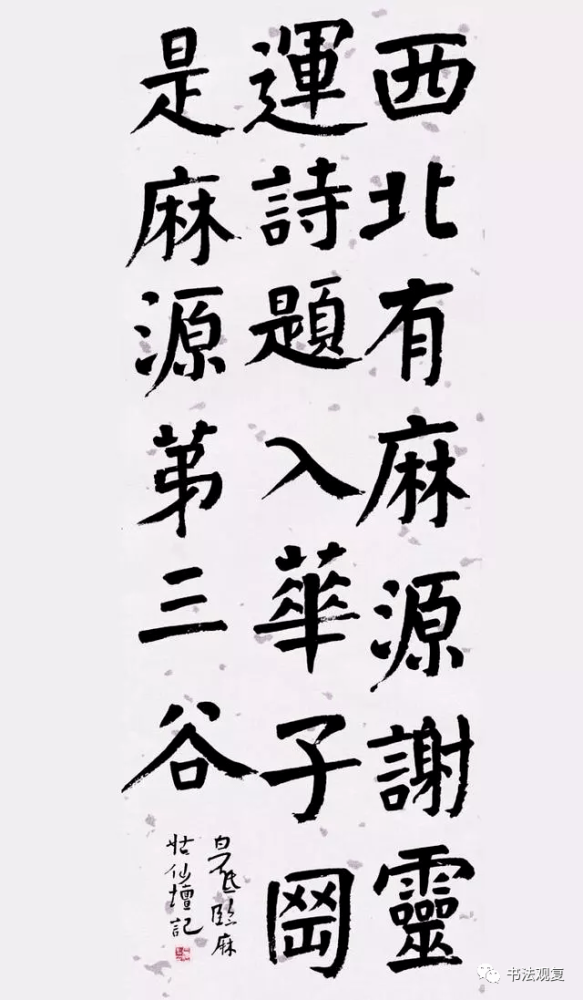 西北有麻源謝靈
運詩題入華子岡
是麻源苐三谷
臨麻
姑仙壇記
书法观复